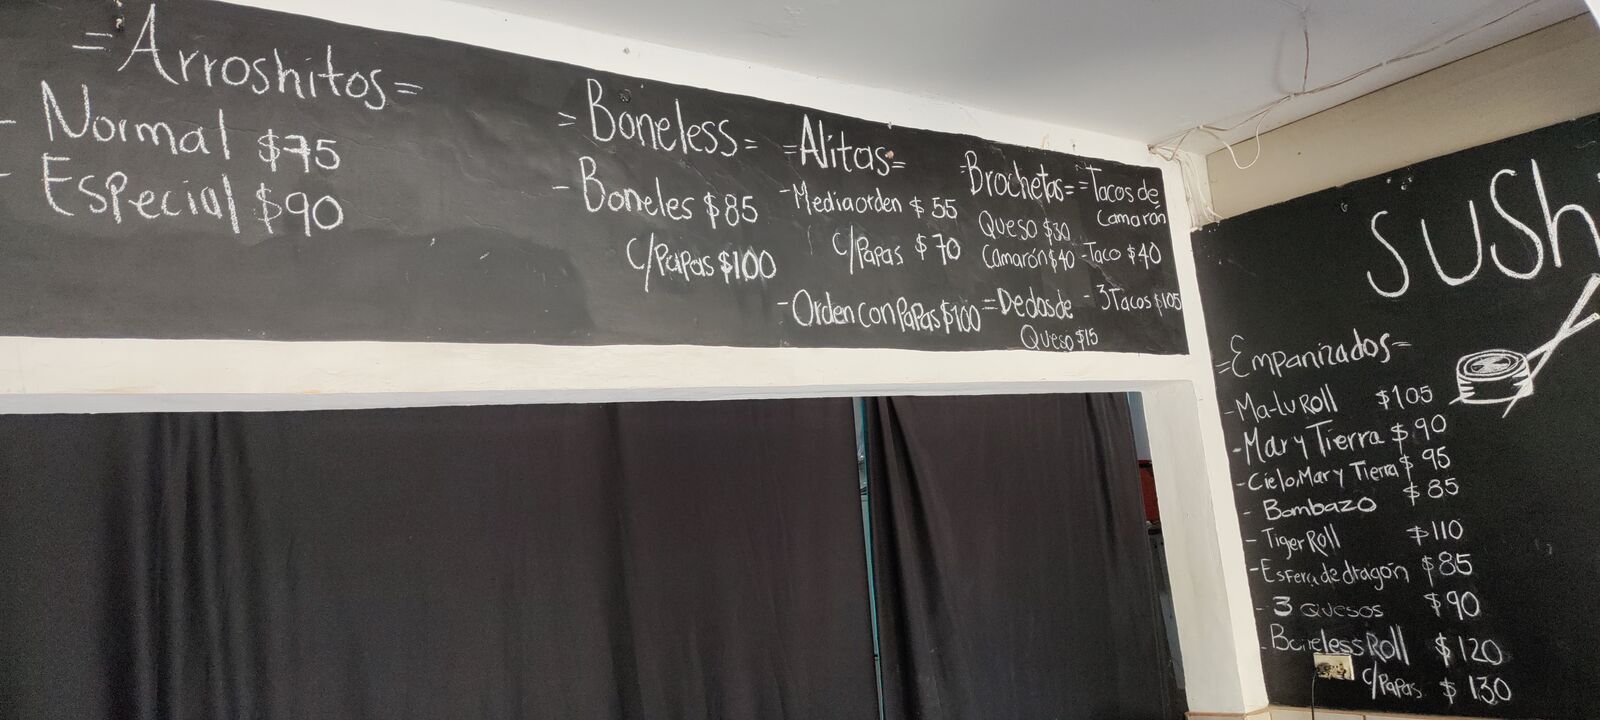 =Arroshitos=
- Normal $75
- Especial $90
=Boneless=
- Boneles $85
c/Papas $100
=Alitas=
- Media orden $55
c/Papas $70
- Orden con Papas $100
=Brochetas=
Queso $30
Camarón $40
=Dedos de
Queso $15
=Tacos de
Camarón
- Taco $40
- 3 Tacos $105
SUSh
=Empanizados=
- Ma-lu Roll $105
- Mar y Tierra $90
- Cielo, Mar y Tierra $95
- Bombazo $85
- Tiger Roll $110
- Esfera de dragón $85
- 3 Quesos $90
- Boneless Roll $120
c/Papas $130